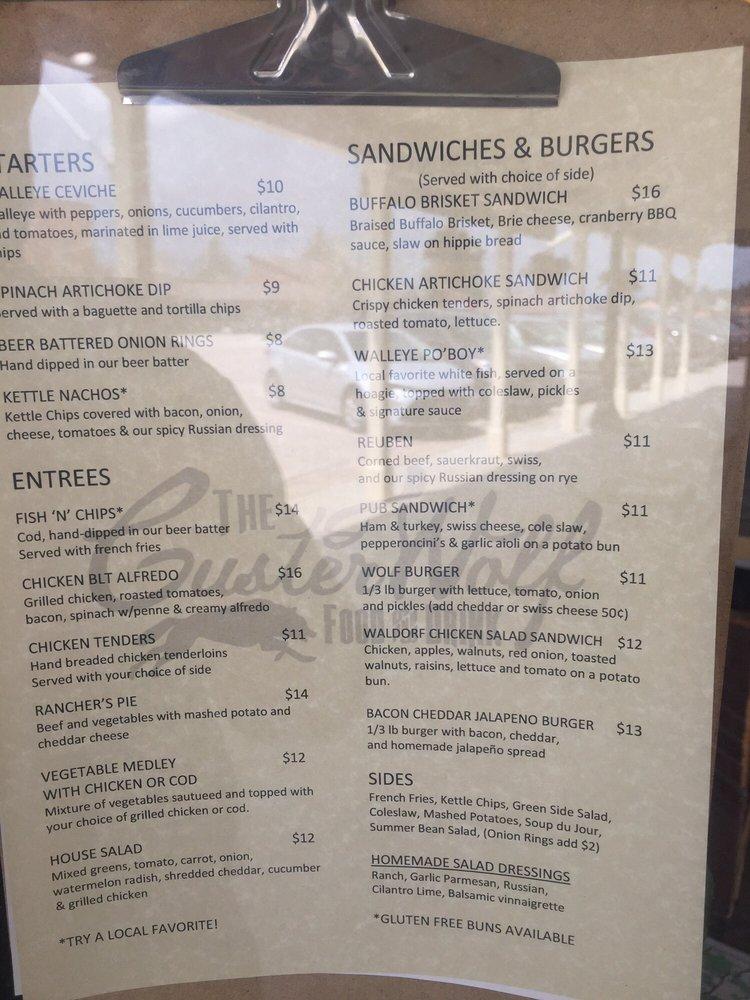 TARTERS
ALLEYE CEVICHE $10
alleye with peppers, onions, cucumbers, cilantro,
d tomatoes, marinated in lime juice, served with
ips
PINACH ARTICHOKE DIP $9
erved with a baguette and tortilla chips
BEER BATTERED ONION RINGS $8
Hand dipped in our beer batter
KETTLE NACHOS* $8
Kettle Chips covered with bacon, onion,
cheese, tomatoes & our spicy Russian dressing
ENTREES
FISH 'N' CHIPS* $14
Cod, hand-dipped in our beer batter
Served with french fries
CHICKEN BLT ALFREDO $16
Grilled chicken, roasted tomatoes,
bacon, spinach w/penne & creamy alfredo
CHICKEN TENDERS $11
Hand breaded chicken tenderloins
Served with your choice of side
RANCHER'S PIE $14
Beef and vegetables with mashed potato and
cheddar cheese
VEGETABLE MEDLEY $12
WITH CHICKEN OR COD
Mixture of vegetables sautueed and topped with
your choice of grilled chicken or cod.
HOUSE SALAD $12
Mixed greens, tomato, carrot, onion,
watermelon radish, shredded cheddar, cucumber
& grilled chicken
*TRY A LOCAL FAVORITE!
SANDWICHES & BURGERS
(Served with choice of side)
BUFFALO BRISKET SANDWICH $16
Braised Buffalo Brisket, Brie cheese, cranberry BBQ
sauce, slaw on hippie bread
CHICKEN ARTICHOKE SANDWICH $11
Crispy chicken tenders, spinach artichoke dip,
roasted tomato, lettuce.
WALLEYE PO'BOY* $13
Local favorite white fish, served on a
hoagie, topped with coleslaw, pickles
& signature sauce
REUBEN $11
Corned beef, sauerkraut, swiss,
and our spicy Russian dressing on rye
PUB SANDWICH* $11
Ham & turkey, swiss cheese, cole slaw,
pepperoncini's & garlic aioli on a potato bun
WOLF BURGER $11
1/3 lb burger with lettuce, tomato, onion
and pickles (add cheddar or swiss cheese 50¢)
WALDORF CHICKEN SALAD SANDWICH $12
Chicken, apples, walnuts, red onion, toasted
walnuts, raisins, lettuce and tomato on a potato
bun.
BACON CHEDDAR JALAPENO BURGER $13
1/3 lb burger with bacon, cheddar,
and homemade jalapeño spread
SIDES
French Fries, Kettle Chips, Green Side Salad,
Coleslaw, Mashed Potatoes, Soup du Jour,
Summer Bean Salad, (Onion Rings add $2)
HOMEMADE SALAD DRESSINGS
Ranch, Garlic Parmesan, Russian,
Cilantro Lime, Balsamic vinnaigrette
*GLUTEN FREE BUNS AVAILABLE
THE
Custer Wolf
FOOD & DRINK